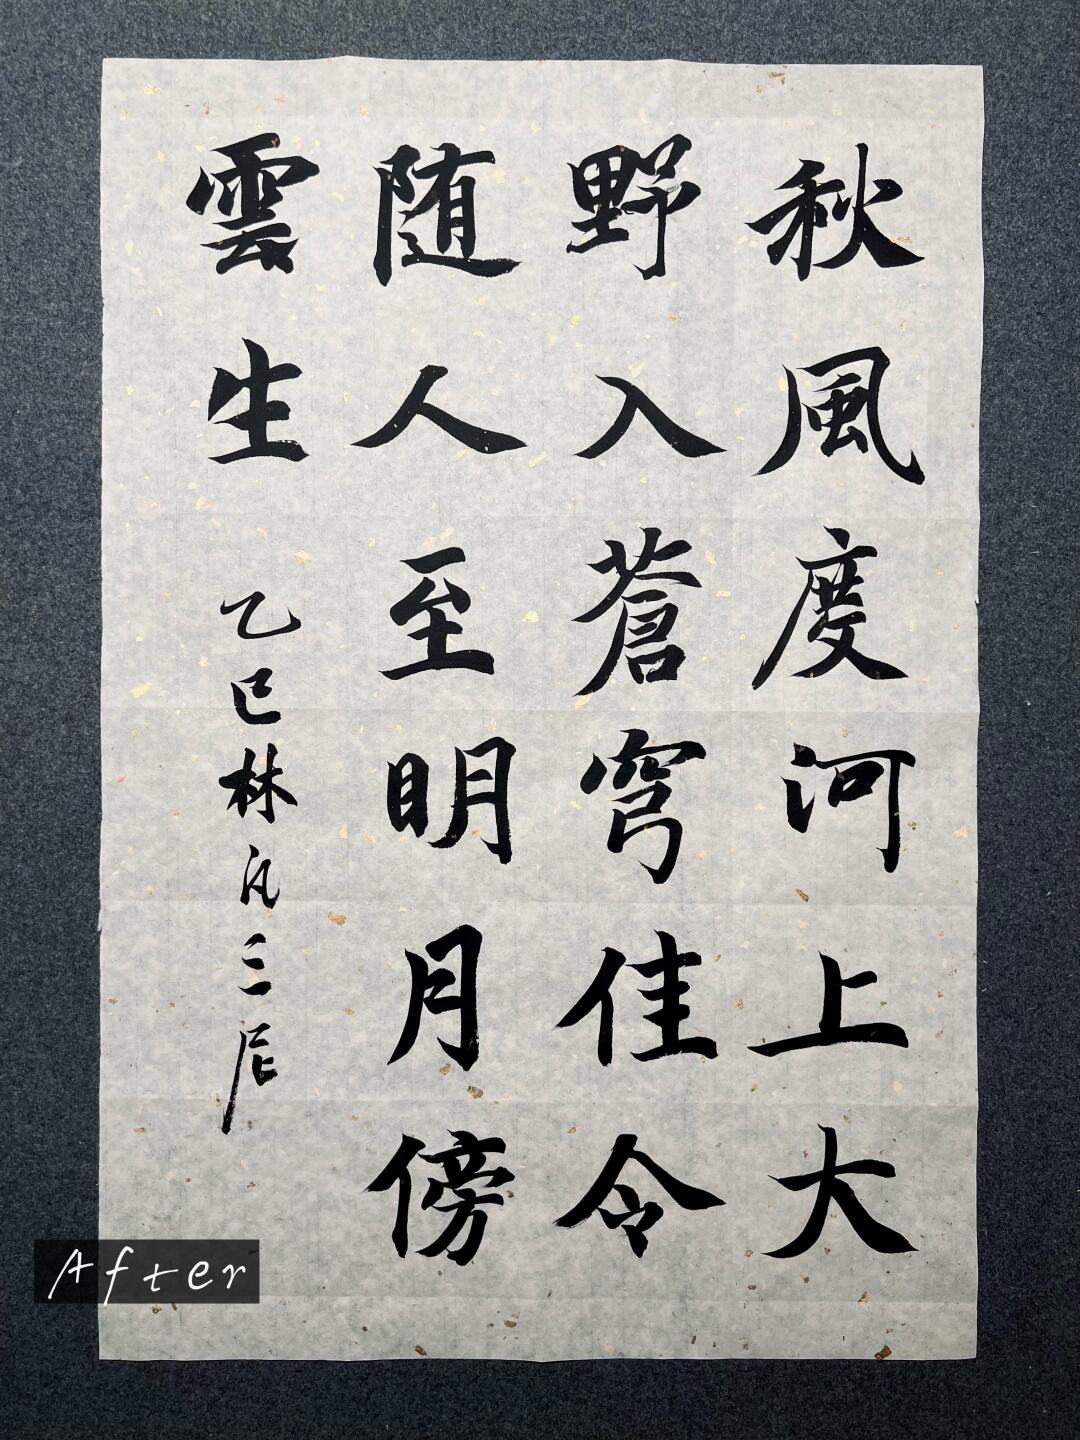 秋風度河上大
野入蒼穹佳令
随人至明月傍
雲生
乙巳林凡三尼
After